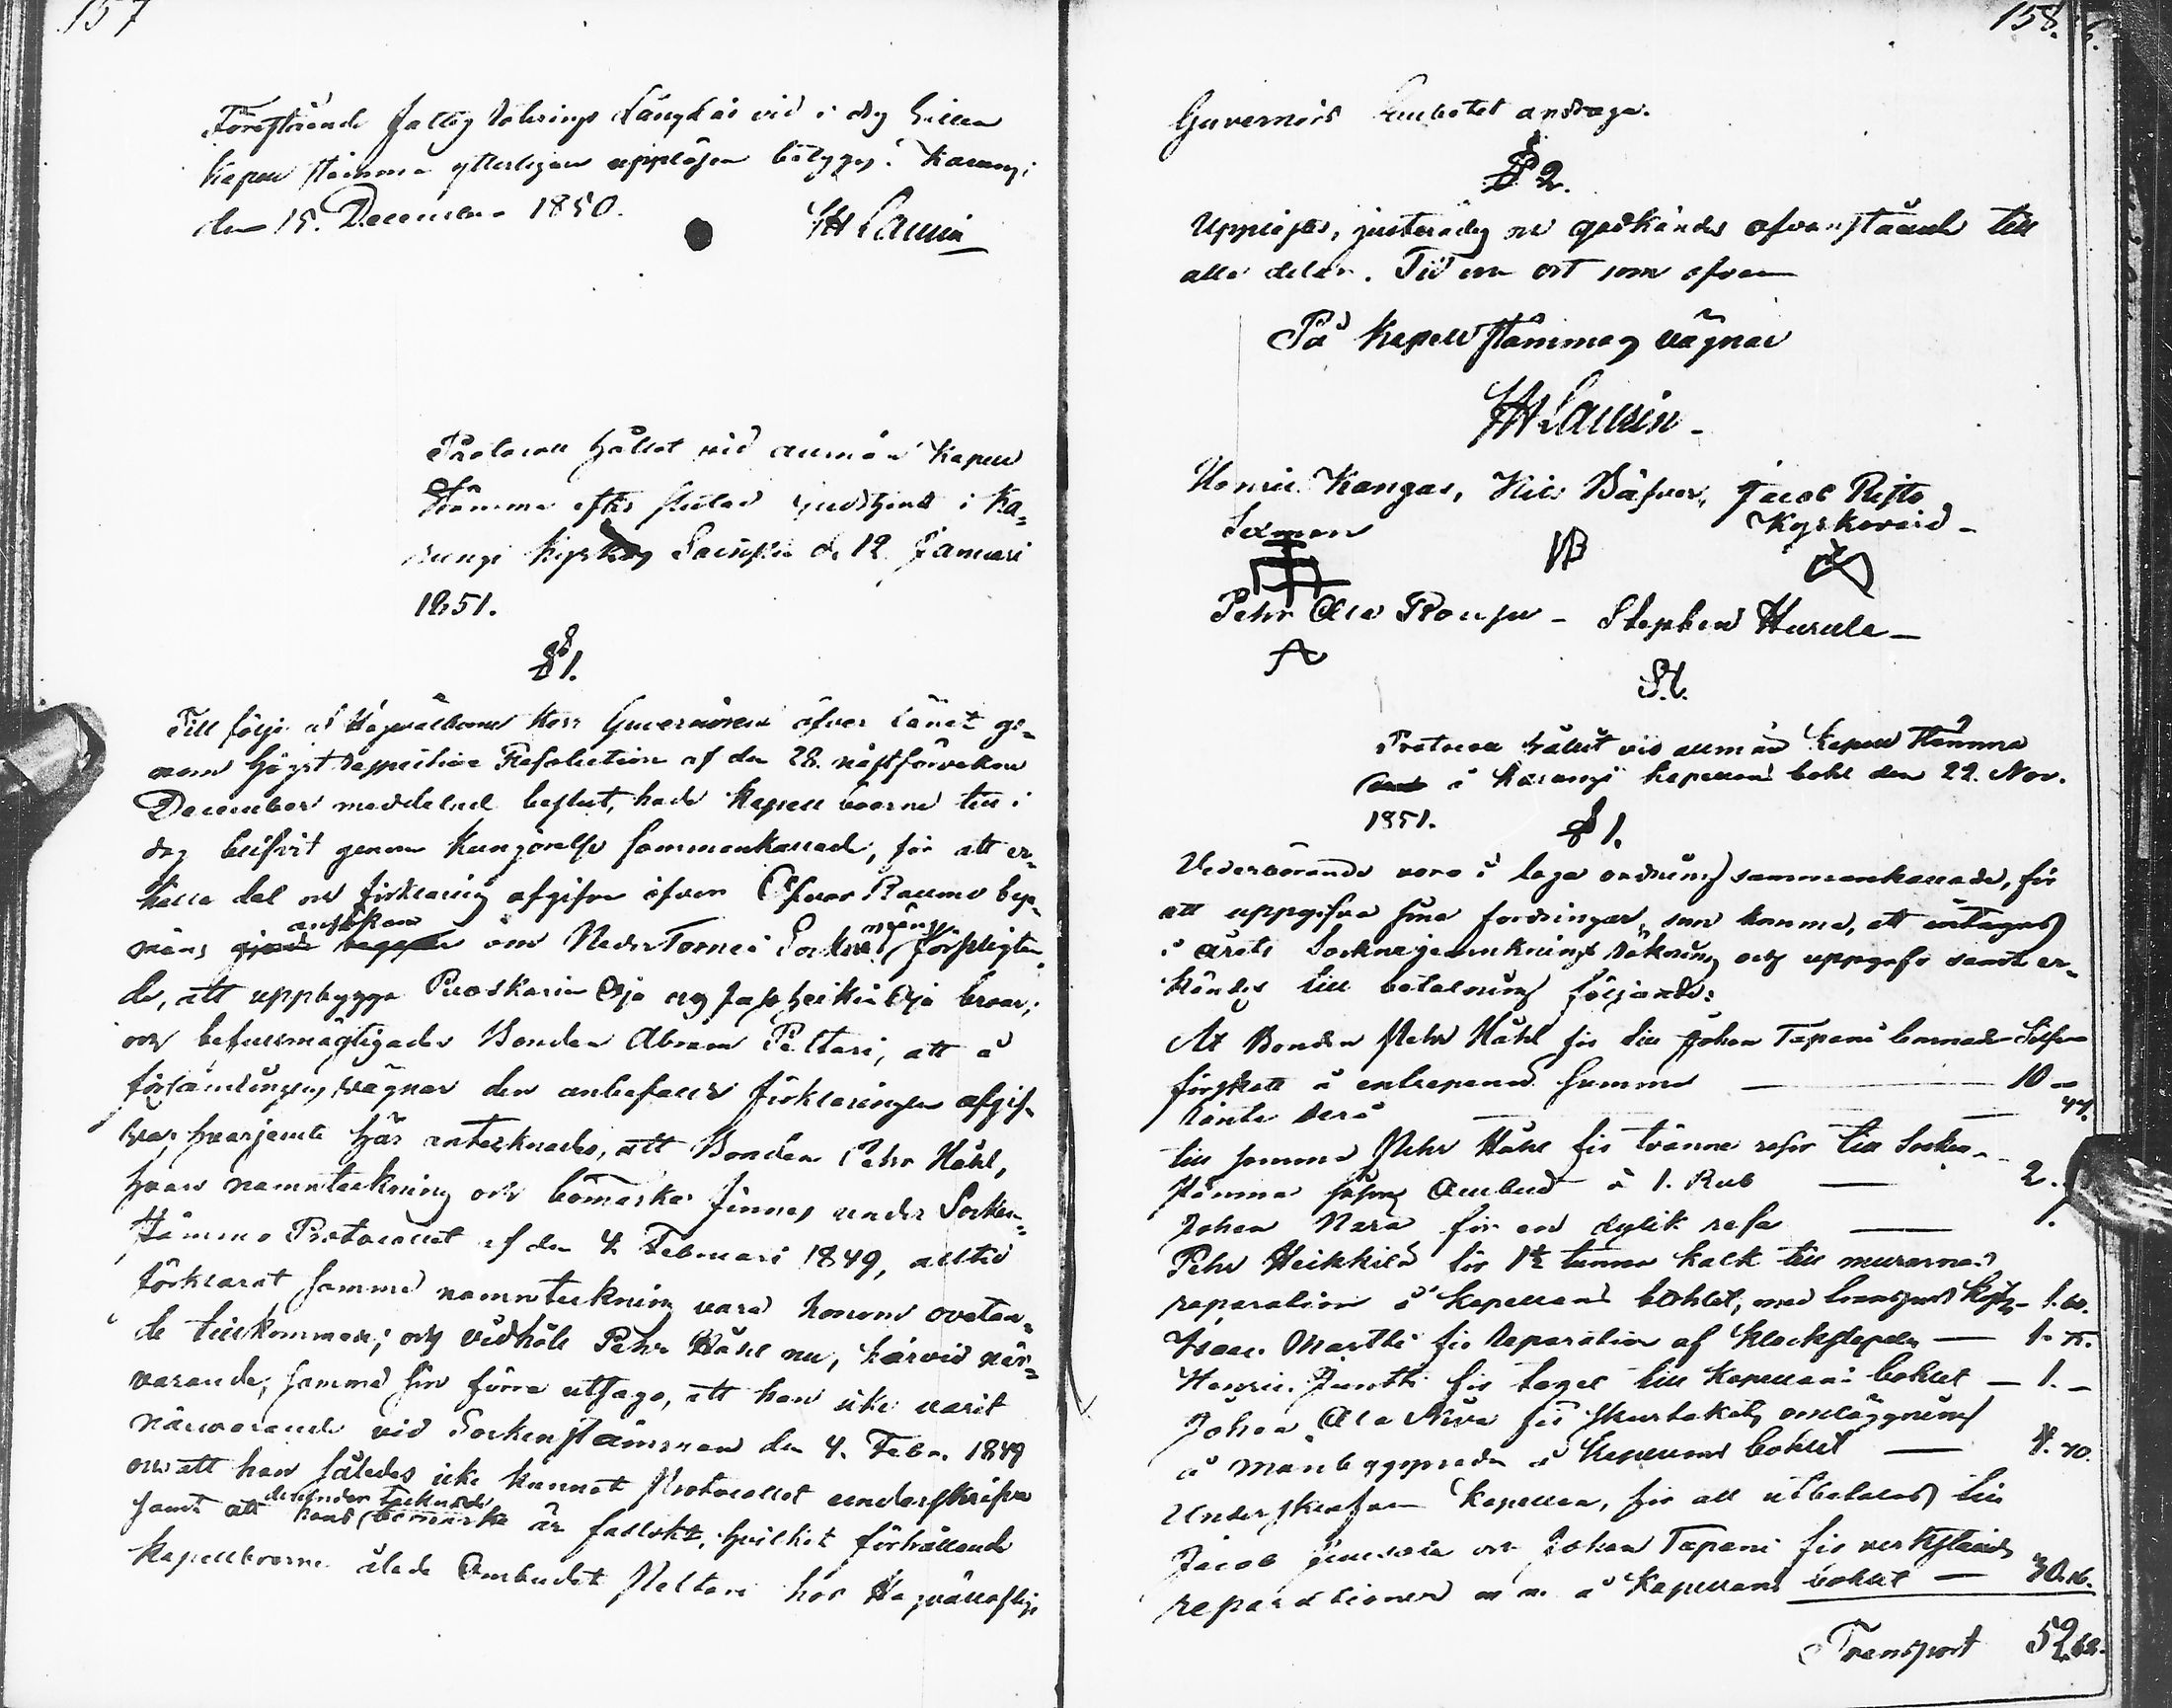 157
Föreståend fattig taxerings Längd är vid i dag hållen
Kapell stämma ytterligare uppläsen betygar. Karungi
den 15. December 1850. HLaurin
Protocoll hållet vid allmän Kapell
Stämma efter slutad gudstjenst i Ka-
rungi kyrkas Sacristia d. 12. Januari
1851.
§ 1.
Till följe af Högvälborne Herr Guvernören öfver Länet ge-
nom högst respective Resolution af den 28. nästförvekne
December meddelad beslut, hade Kapell boerne till i
dag blifvit genom Kungörelse sammankallade, för att er-
hålla del och förklaring afgifva öfver Öfver Raumo by-
mäns ansökan om Neder Torneå Sockne mäns förpligtan-
de, att uppbygga Puoskarin Oja och Jassheikin Oja broar;
och befullmägtigade Bonden Abram Peltari, att å
församlingens vägnar den anbefallde förklaringen afgif-
va, hvarjemte här antecknades, att Bonden Pehr Håhl,
hvars namnteckning och bomärke finnes under Socken-
stämmo Protocollet af den 4. Februari 1849, alltid
förklarat samma namnteckning vara honom ovetan-
de tillkommen; och vidhöll Pehr Håhl nu, härvid när-
varande, samma sin förra utsago, att han icke varit
närvarande vid Sockenstämman den 4. Febr. 1849
och att han således icke kunnat Protocollet underskrifva
samt att hans derunder tecknade bomärke är falskt, hvilket förhållande
Kapellboerne ålade Ombudet Peltari hos Högvällofliga
158.
Guvernörs Embetet andraga.
§ 2.
Upplästes, justerades och godkändes ofvanstående till
alla delar. Tid och ort som ofvan
På Kapell stämmans vägnar
HLaurin
Henric Kangas, Nils Bäfver, Jacob Risto
Sexman Kyrkovärd
NB
Pehr Ala Roupu - Stephen Hurula
S.H.
Protocoll hållet vid allmän Kapell Stämma
i Karungi kapellans bohl den 22. Nov.
1851.
§ 1.
Vederbörande voro i laga ordning sammankallade, för
att uppgifva sina fordringar, som komma, att intagas
i årets Sockne räkning och uppgafs samt er-
kändes till betalning följande:
At Bonden Pehr Håhl för till Johan Tapani lemnade
förskott å entreprenad summa — 10 —
Ränta derå — 44.
till samma Pehr Håhl för tvänne resor till Socken-
stämma såsom Ombud à 1. Rub — 2.
Johan Nara för en dylik resa — 1.
Pehr Heikkilä för 1½ tunna kalk till murarnas
reparation å kapellans bohlet, med — 1. 60.
Isaac Martti för reparation af Klockstapeln — 1. 75.
Henric Juntti för Tegel till Kapellans bohlet — 1. —
Johan Ala Niva för omläggning
å manbyggnaden å Kapellans bohlet — 4. 70.
Underskrefven Kapellan, för att utbetalas till
Jacob och Johan Tapani för verkstälda
reparationer m. m. å Kapellans bohlet — 30. 16.
Transport 52.